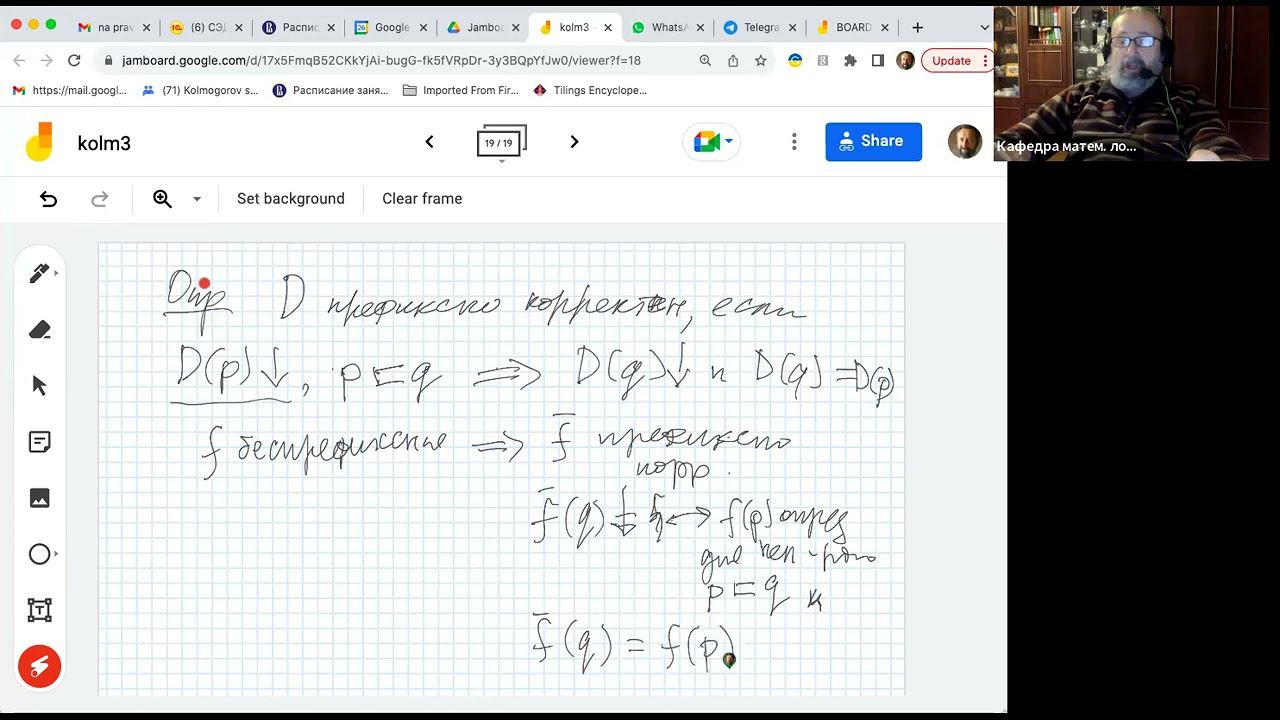 na prav
(6) СЭД
Распис
Google
Jamboa
kolm3 -
WhatsA
Telegra
BOARD
jamboard.google.com/d/17x5FmqB52CKmYjAi-bugG-fk5fVRpDr-3y3BQpYfJw0/viewer?f=18
Update
https://mail.googl...
(71) Kolmogorov s...
Расписание заня...
Imported From Fir...
Tilings Encyclope...
kolm3
19 / 19
Share
Кафедра матем. ло...
Set background
Clear frame
Опр D префиксно корректен, если
D(p)↓, p⊏q ⟹ D(q)↓ и D(q)=D(p)
f беспрефиксные ⟹ f̄ префиксно
корр.
f̄(q)↓ ↔ f(p) опред
для нек-рого
p⊏q и
f̄(q) = f(p)